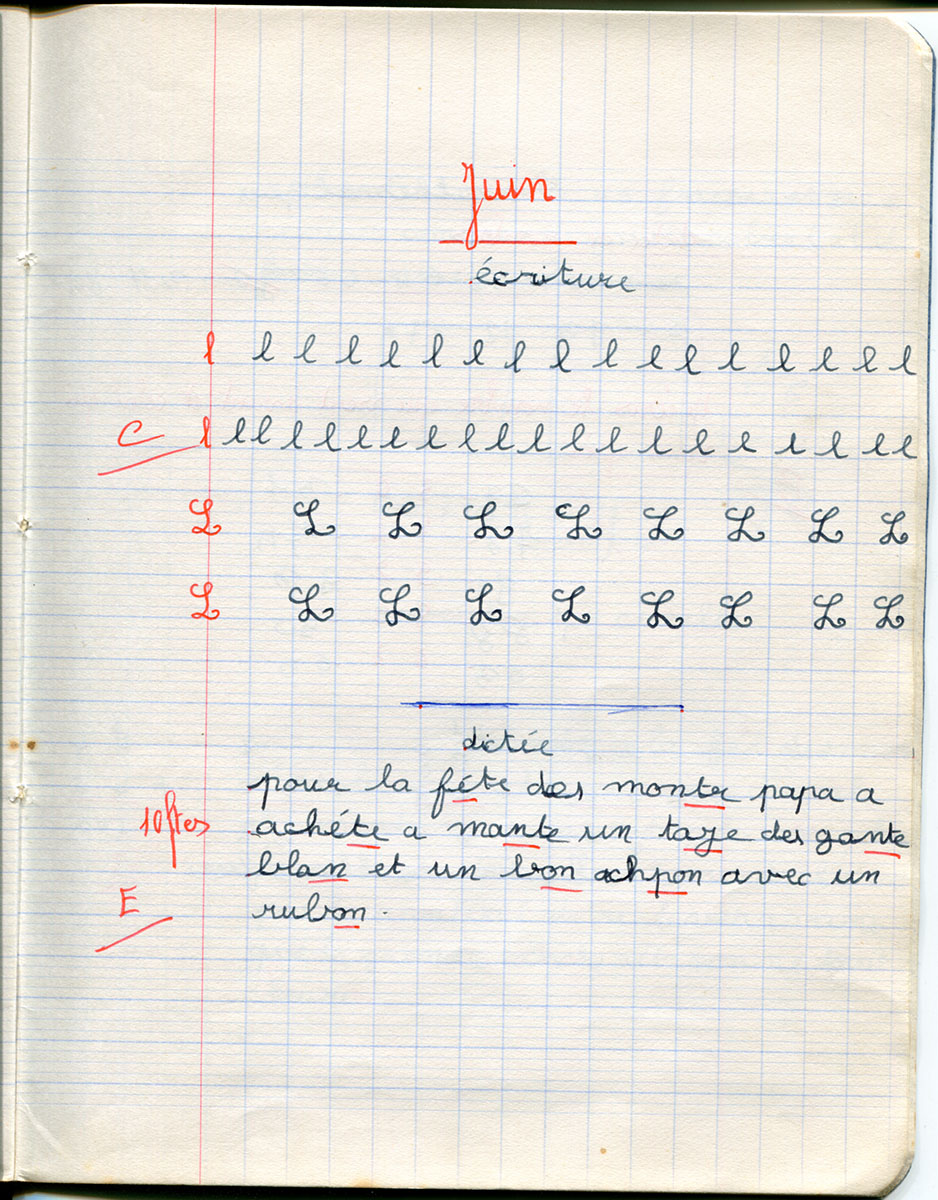 Juin
écriture
l l l l l l l l l l l l l l l l l
C l l l l l l l l l l l l l l l l l l l l
L L L L L L L L L
L L L L L L L L L
dictée
pour la féte des monter papa a
10 ftes achéte a mante un taye des gante
blan et un bon achpon avec un
E rubon.